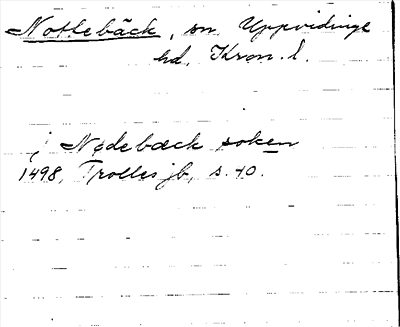 Nottebäck, sn Uppvidinge
hd, Kron. l.
j Nødebæck soken
1498, Trolles jb, s. 40.